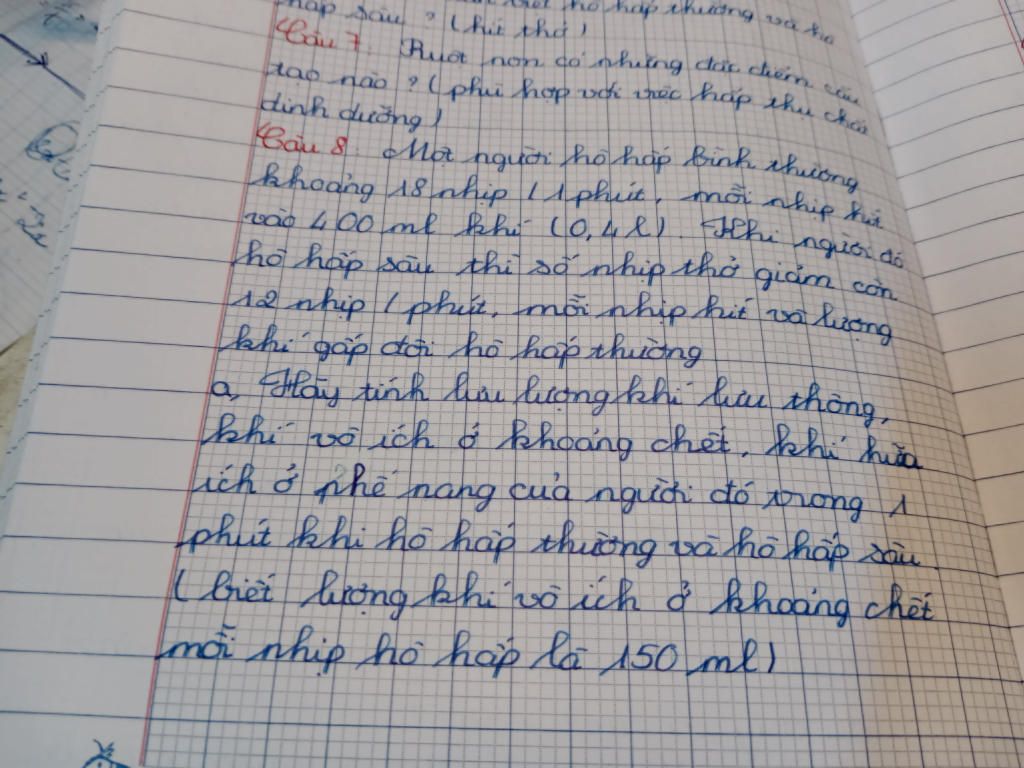 hô hấp thường và hô
hấp sâu ? (hít thở)
Câu 7. Ruột non có những đặc điểm cấu
tạo nào ? (phù hợp với việc hấp thu chất
dinh dưỡng)
Câu 8. Một người hô hấp bình thường
khoảng 18 nhịp / 1 phút, mỗi nhịp hít
vào 400 ml khí (0,4 l). Khi người đó
hô hấp sâu thì số nhịp thở giảm còn
12 nhịp / phút, mỗi nhịp hít và lượng
khí gấp đôi hô hấp thường
a, Hãy tính lưu lượng khí lưu thông,
khí vô ích ở khoảng chết, khí hữu
ích ở phế nang của người đó trong 1
phút khi hô hấp thường và hô hấp sâu
(biết lượng khí vô ích ở khoảng chết
mỗi nhịp hô hấp là 150 ml)